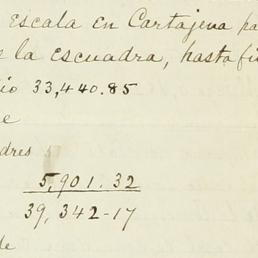 escala en Cartajena pa
la escuadra, hasta fi
io 33,440.85
e
dres
5,901.32
39,342-17
de